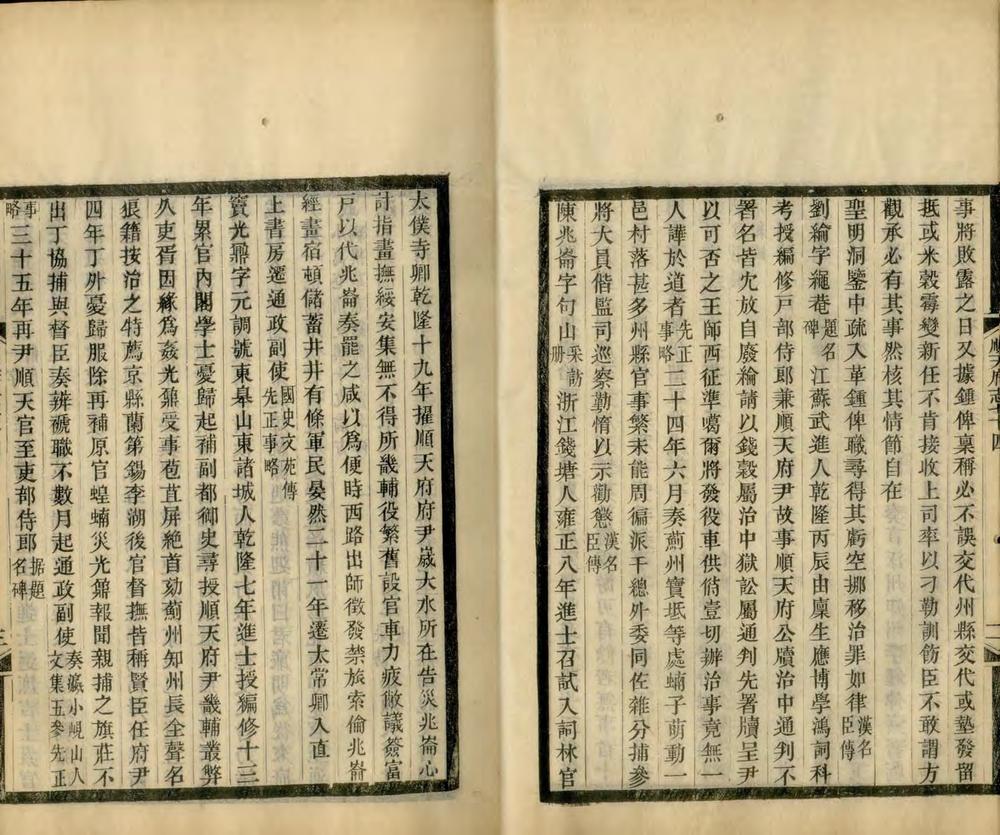 事將敗露之日又據鍾俾稟稱必不誤交代州縣交代或墊發留
抵或米穀霉變新任不肯接收上司率以刁勒訓飭臣不敢謂方
觀承必有其事然核其情節自在
聖明洞鑒中疏入革鍾俾職尋得其虧空挪移治罪如律漢名臣傳
劉綸字繩菴題名碑江蘇武進人乾隆丙辰由廩生應博學鴻詞科
考授編修戶部侍郎兼順天府尹故事順天府公牘治中通判不
署名皆宂放自廢綸請以錢穀屬治中獄訟屬通判先署牘呈尹
以可否之王師西征準噶爾將發役車供偫壹切辦治事竟無一
人譁於道者先正事略二十四年六月奏薊州寶坻等處蝻子萌動一
邑村落甚多州縣官事繁未能周徧派干總外委同佐雜分捕參
將大員偕監司巡察勤惰以示勸懲漢名臣傳
陳兆崙字句山采訪册浙江錢塘人雍正八年進士召試入詞林官
太僕寺卿乾隆十九年擢順天府府尹歲大水所在告災兆崙心
計指畫撫綏安集無不得所畿輔役繁舊設官車力疲敝議簽富
戶以代兆崙奏罷之咸以爲便時西路出師徵發禁旅索倫兆崙
經畫宿頓儲蓄井井有條軍民晏然二十一年遷太常卿入直
上書房遷通政副使國史文苑傳先正事略
竇光鼐字元調號東皋山東諸城人乾隆七年進士授編修十三
年累官內閣學士憂歸起補副都御史尋授順天府尹畿輔叢弊
久吏胥因緣爲姦光鼐受事苞苴屏絶首劾薊州知州長全聲名
狼籍按治之特薦京縣蘭第錫李湖後官督撫皆稱賢臣任府尹
四年丁外憂歸服除再補原官蝗蝻災光鼐報聞親捕之旗莊不
出丁協捕與督臣奏辨褫職不數月起通政副使秦瀛小峴山人文集五參先正
事略三十五年再尹順天官至吏部侍郎据題名碑